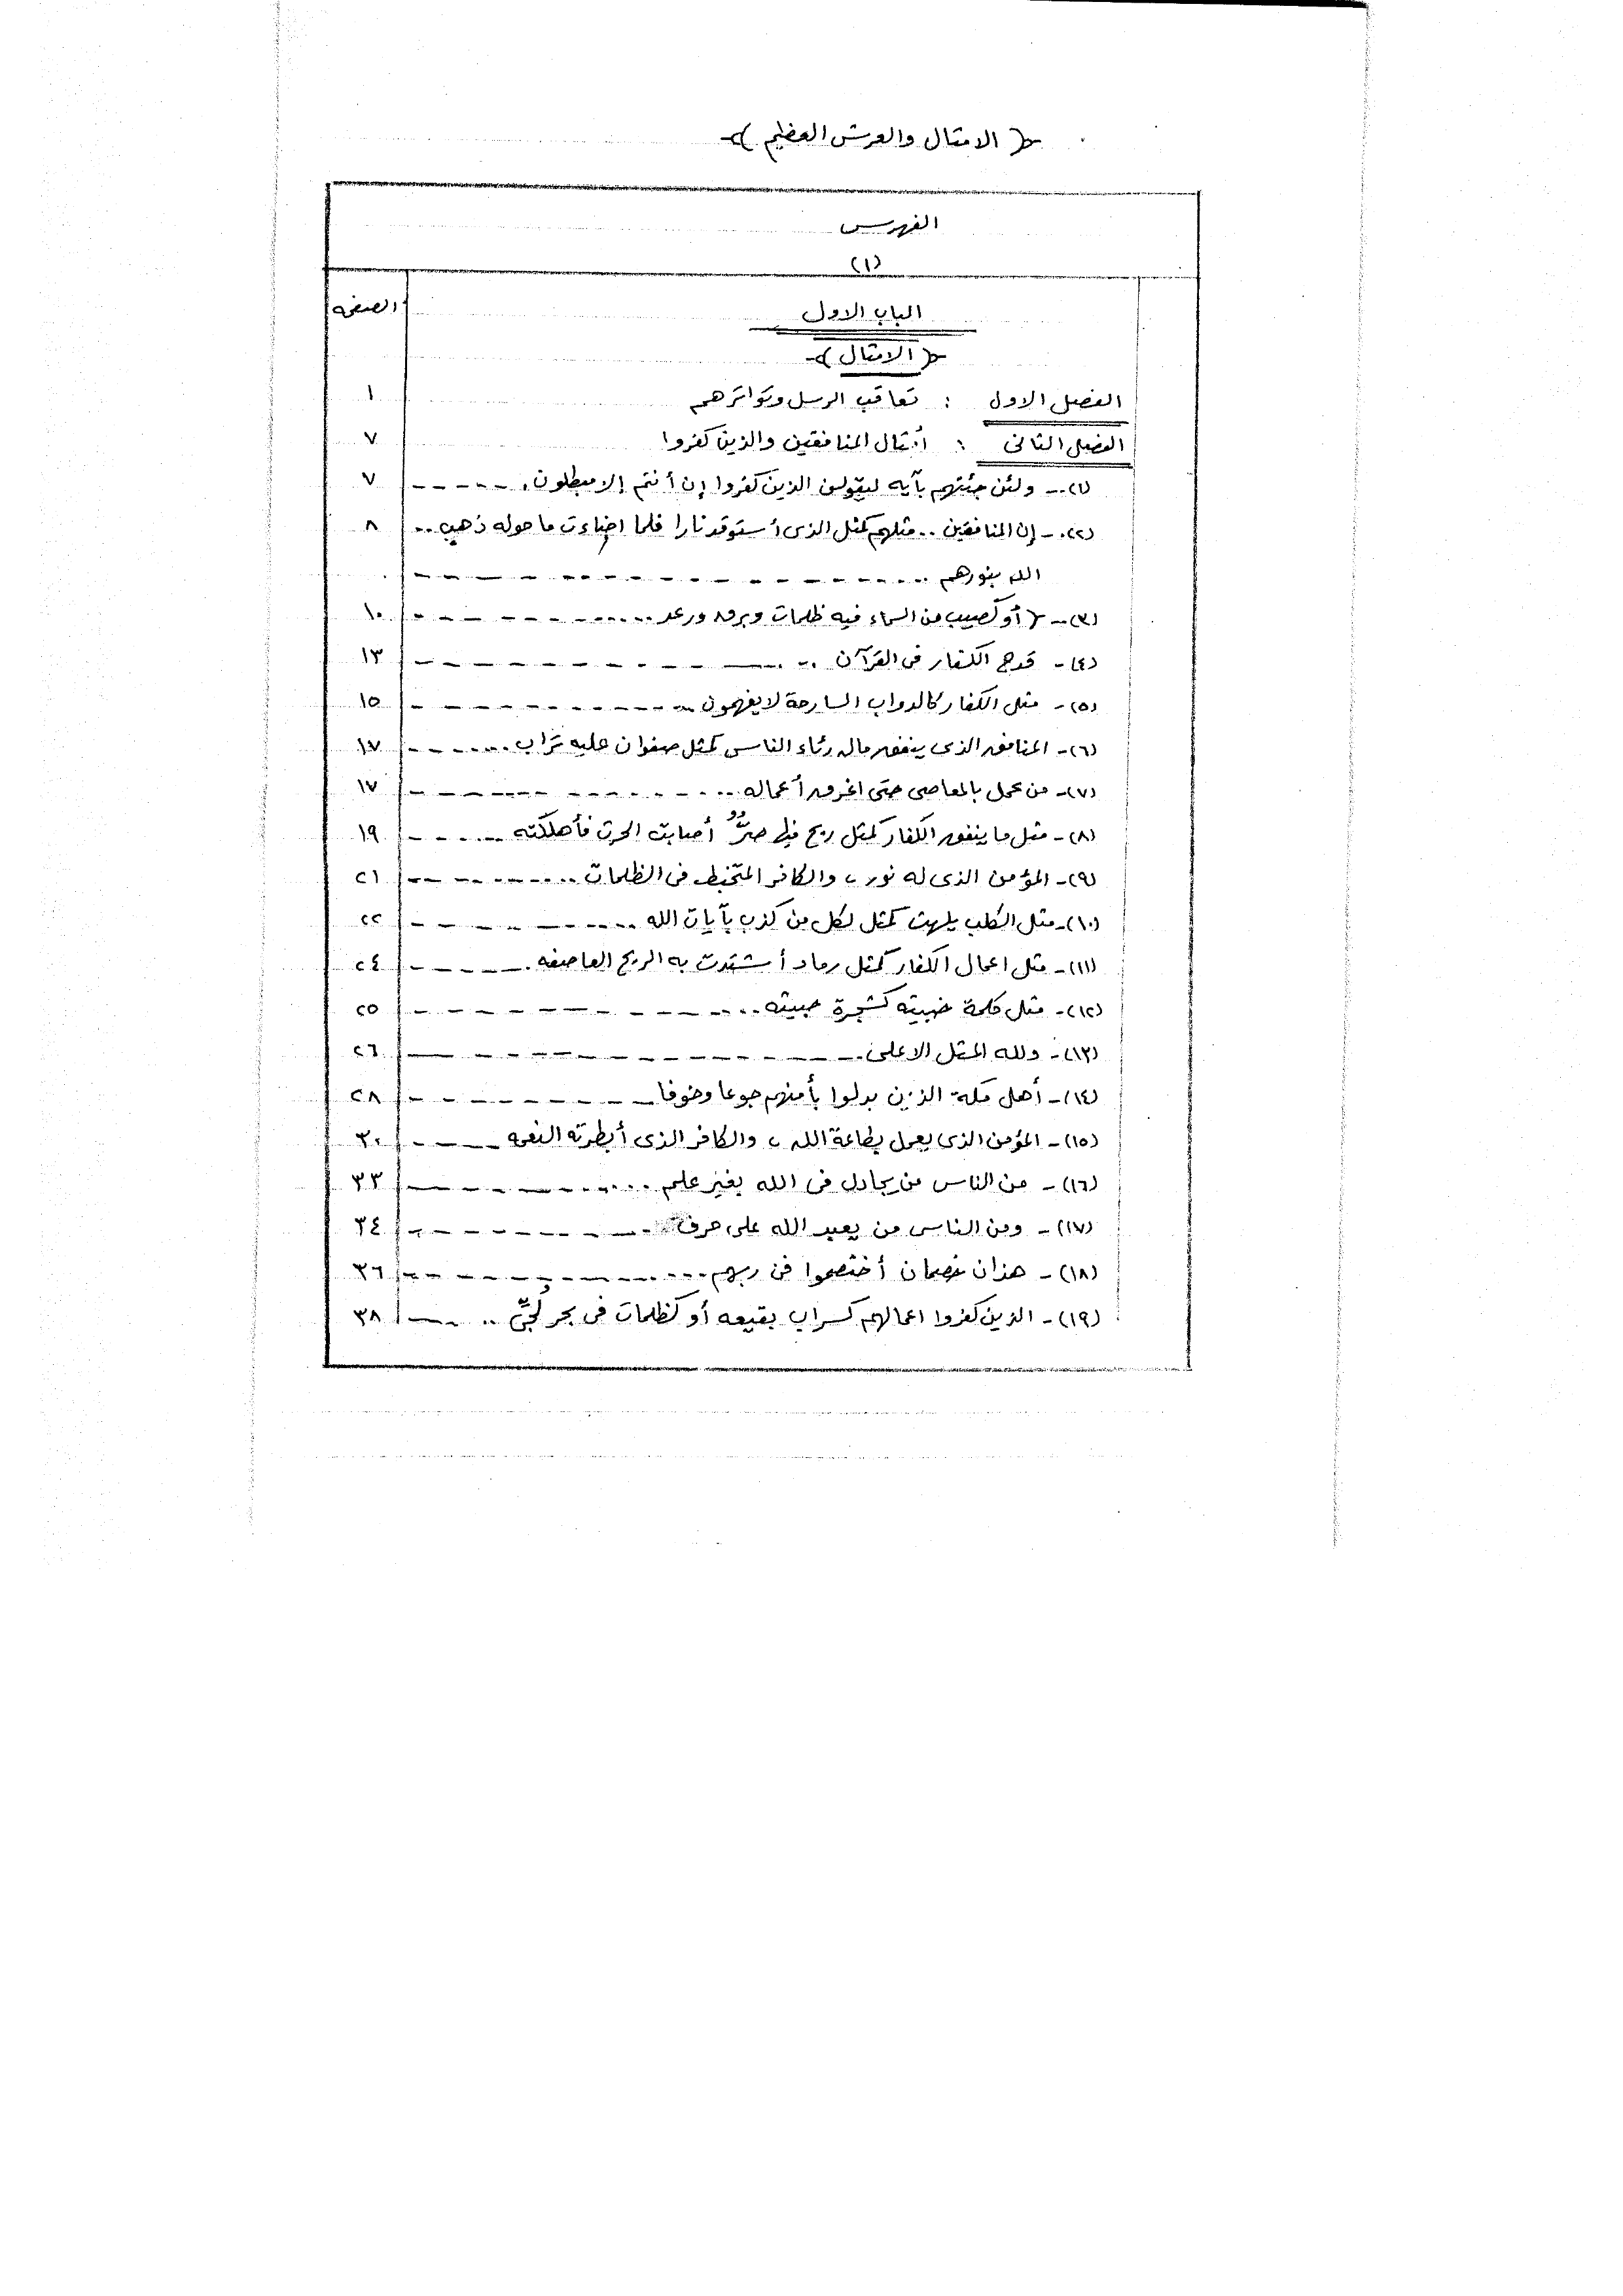 ﴿ الامثال والعرش العظيم ﴾
الفهرس
(١)
الباب الاول الصفحه
﴿ الامثال ﴾
الفصل الاول : تعاقب الرسل وتواترهم ١
الفصل الثانى : أمثال المنافقين والذين كفروا ٧
(١) - ولئن جئتهم بآيه ليقولن الذين كفروا إن أنتم إلا مبطلون ٧
(٢) - إن المنافقين .. مثلهم كمثل الذى أستوقد نارا فلما اضاءت ما حوله ذهب .. ٨
الله بنورهم
(٣) - ﴿ أو كصيب من السماء فيه ظلمات وبرق ورعد ١٠
(٤) - قدح الكفار فى القرآن ١٣
(٥) - مثل الكفار كالدواب السارحة لا يفهمون ١٥
(٦) - المنافق الذى ينفق ماله رئاء الناس كمثل صفوان عليه تراب ١٧
(٧) - من عمل بالمعاصى حتى اغرق أعماله ١٧
(٨) - مثل ما ينفق الكفار كمثل ريح فيها صرٌّ أصابت الحرث فأهلكته ١٩
(٩) - المؤمن الذى له نور ، والكافر المتخبط فى الظلمات ٢١
(١٠) - مثل الكلب يلهث كمثل لكل من كذب بآيات الله ٢٢
(١١) - مثل اعمال الكفار كمثل رماد أشتدت به الريح العاصفه ٢٤
(١٢) - مثل كلمة خبيثه كشجرة خبيثه ٢٥
(١٣) - ولله المثل الاعلى ٢٦
(١٤) - أهل مكة الذين بدلوا بأمنهم جوعا وخوفا ٢٨
(١٥) - المؤمن الذى يعمل بطاعة الله ، والكافر الذى أبطرته النعمه ٣٠
(١٦) - من الناس من يجادل فى الله بغير علم ٣٣
(١٧) - ومن الناس من يعبد الله على حرف ٣٤
(١٨) - هذان خصمان أختصموا فى ربهم ٣٦
(١٩) - الذين كفروا اعمالهم كسراب بقيعه أو كظلمات فى بحر لُجِّىٍّ .. ٣٨